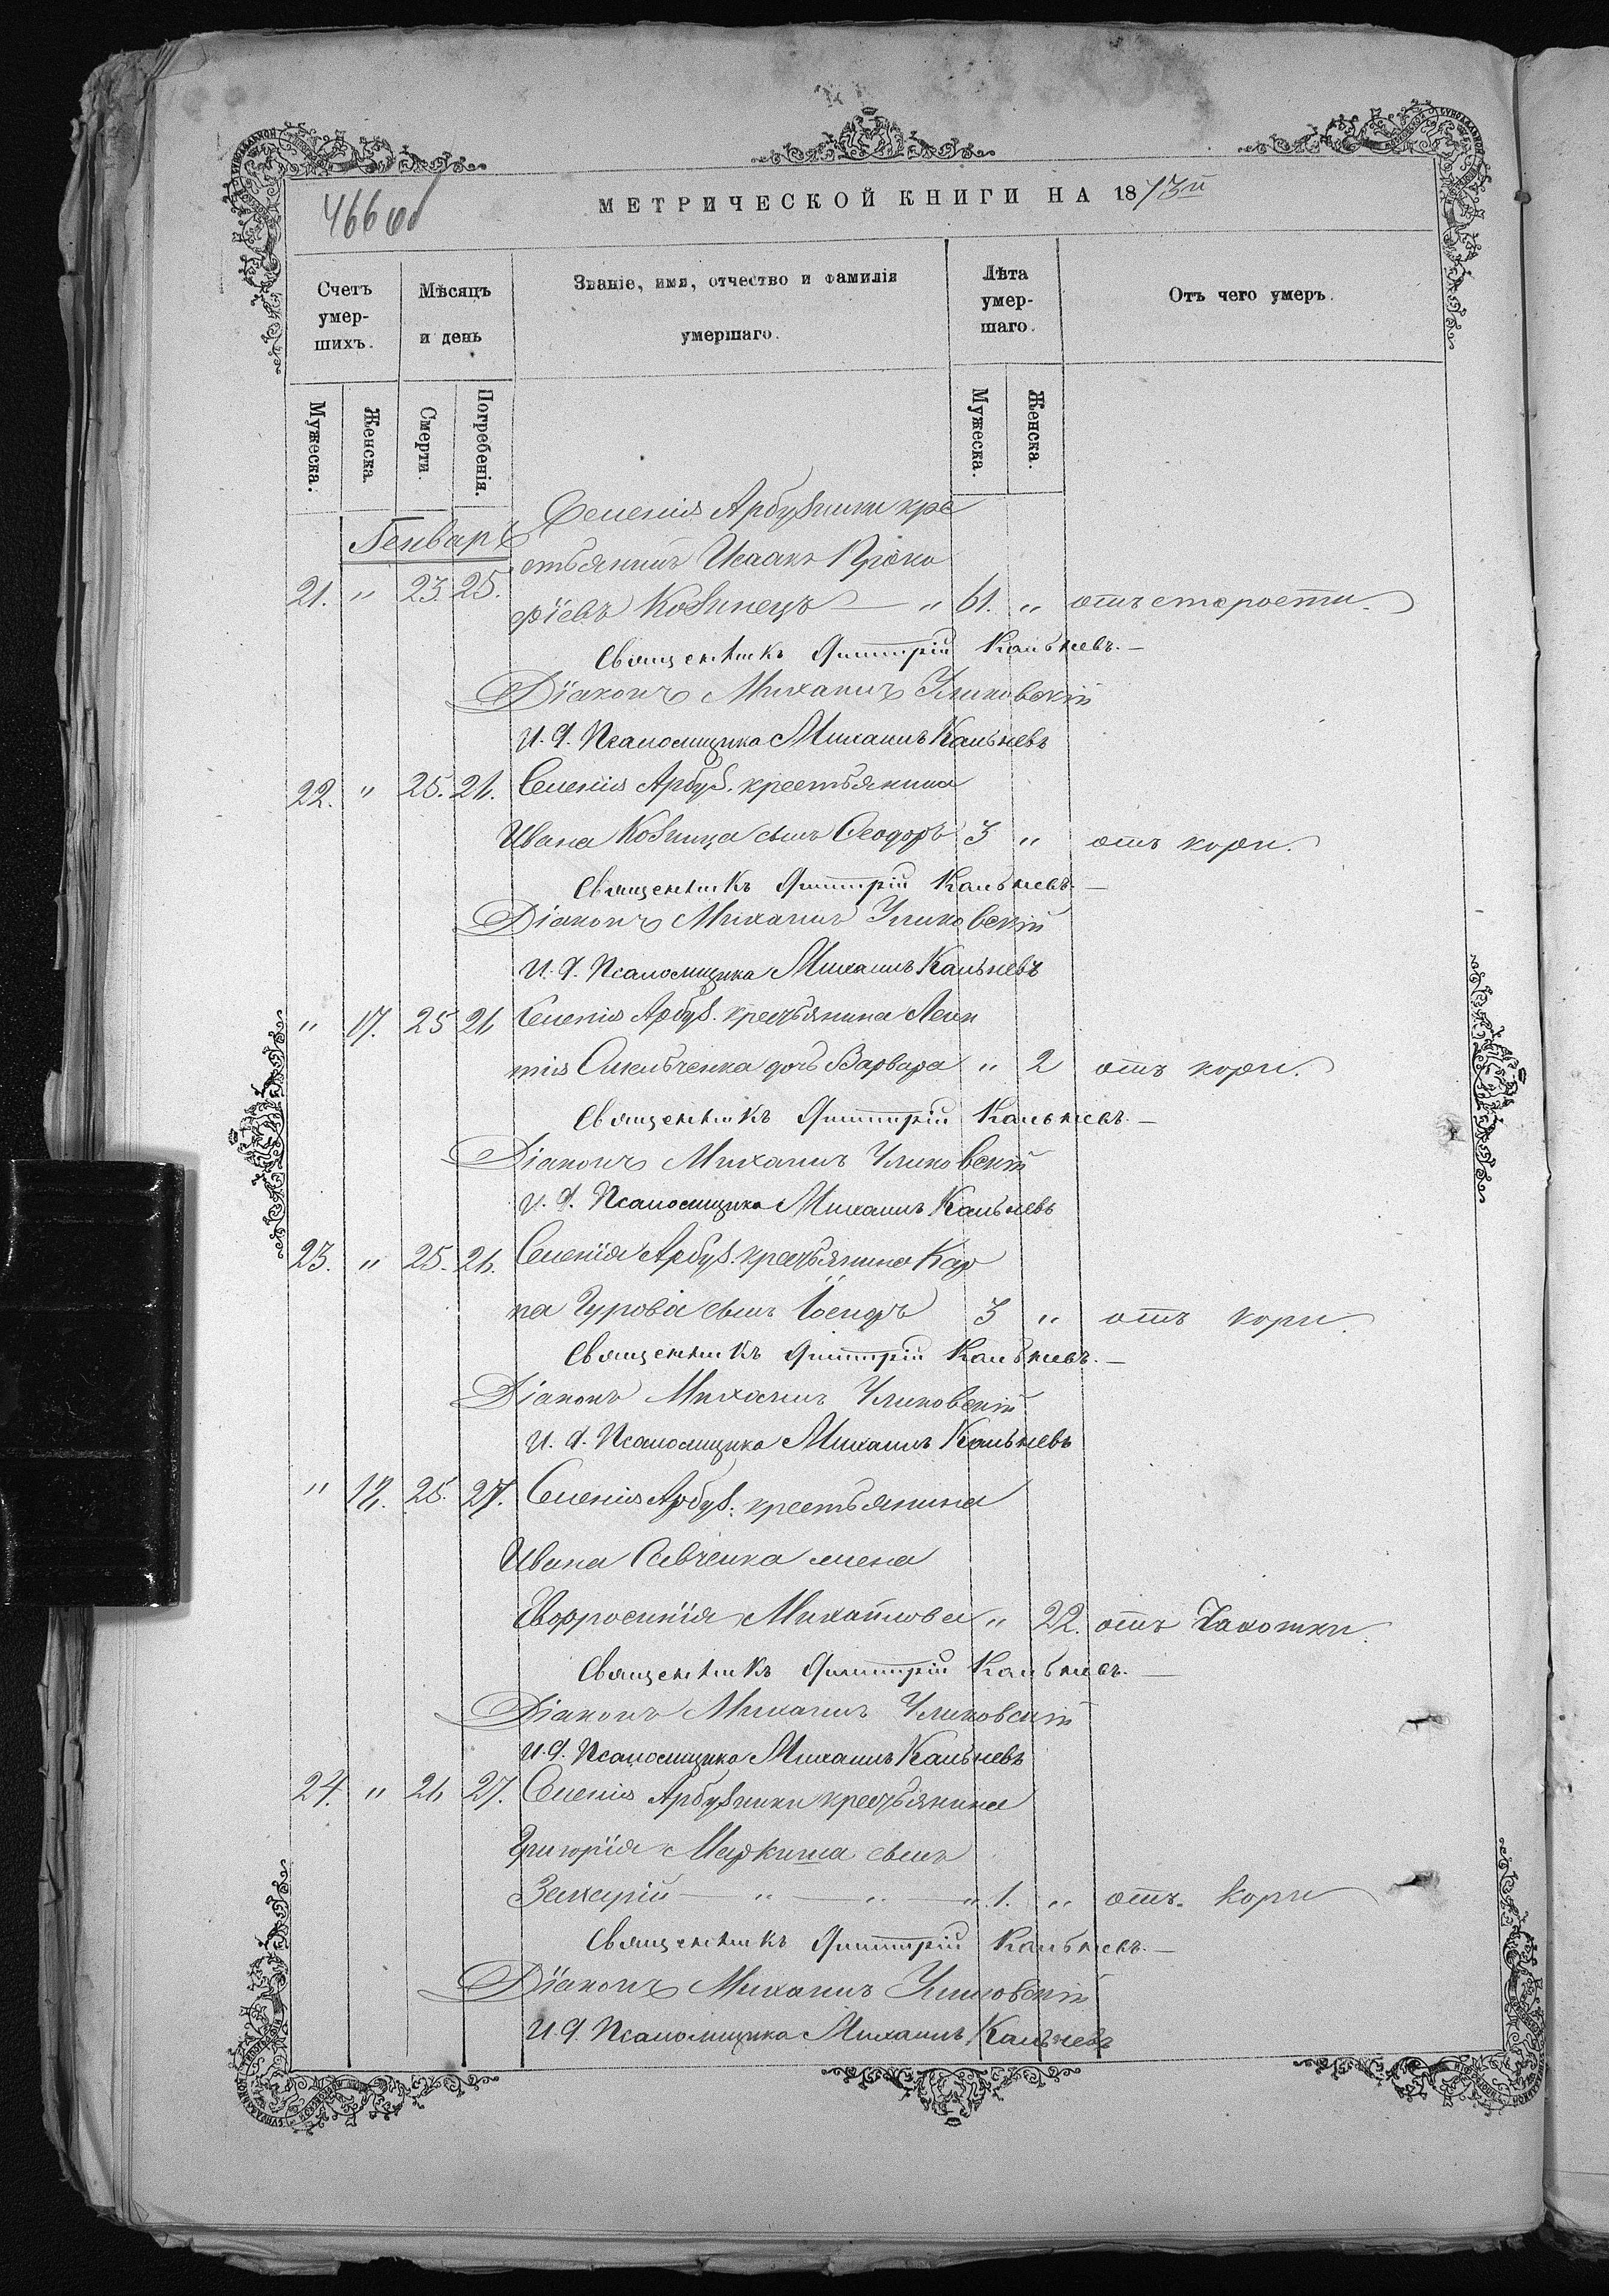 466 об
МЕТРИЧЕСКОЙ КНИГИ НА 1873й
Счетъ умер-шихъ.
Мѣсяцъ и день
Званіе, имя, отчество и фамилія умершаго.
Лѣта умер-шаго.
Отъ чего умеръ.
Мужеска. Женска. Смерти. Погребенія. Мужеска. Женска.
Генварь
Селенія Арбузинки кре
стьянинъ Исаакъ Проко
21. " 23. 25. фіевъ Козинецъ — " 61. " отъ старости.
Священникъ Димитрій Кальневъ. —
Діаконъ Михаилъ
И. д. Псаломщика Михаилъ Кальневъ
22. " 25. 26. Селенія Арбуз. крестьянина
Ивана Козинца сынъ Ѳеодоръ 3 " отъ кори.
Священникъ Димитрій Кальневъ. —
Діаконъ Михаилъ
И. д. Псаломщика Михаилъ Кальневъ
" 17. 25 26 Селенія Арбуз. крестьянина Леон
тія дочь Варвара " 2 отъ кори.
Священникъ Димитрій Кальневъ. —
Діаконъ Михаилъ
И. д. Псаломщика Михаилъ Кальневъ
23. " 25. 26. Селенія Арбуз. крестьянина Кар
па сынъ Іосифъ 3 " отъ кори.
Священникъ Димитрій Кальневъ. —
Діаконъ Михаилъ
И. д. Псаломщика Михаилъ Кальневъ
" 18. 25. 27. Селенія Арбуз. крестьянина
Ивана Савченка жена
Евфросинія Михайлова " 22. отъ чахотки.
Священникъ Димитрій Кальневъ. —
Діаконъ Михаилъ
И. д. Псаломщика Михаилъ Кальневъ
24. " 26 27. Селенія Арбузинки крестьянина
Григорія сынъ
Захарій — " — " — " 1. " отъ кори
Священникъ Димитрій Кальневъ. —
Діаконъ Михаилъ
И. д. Псаломщика Михаилъ Кальневъ